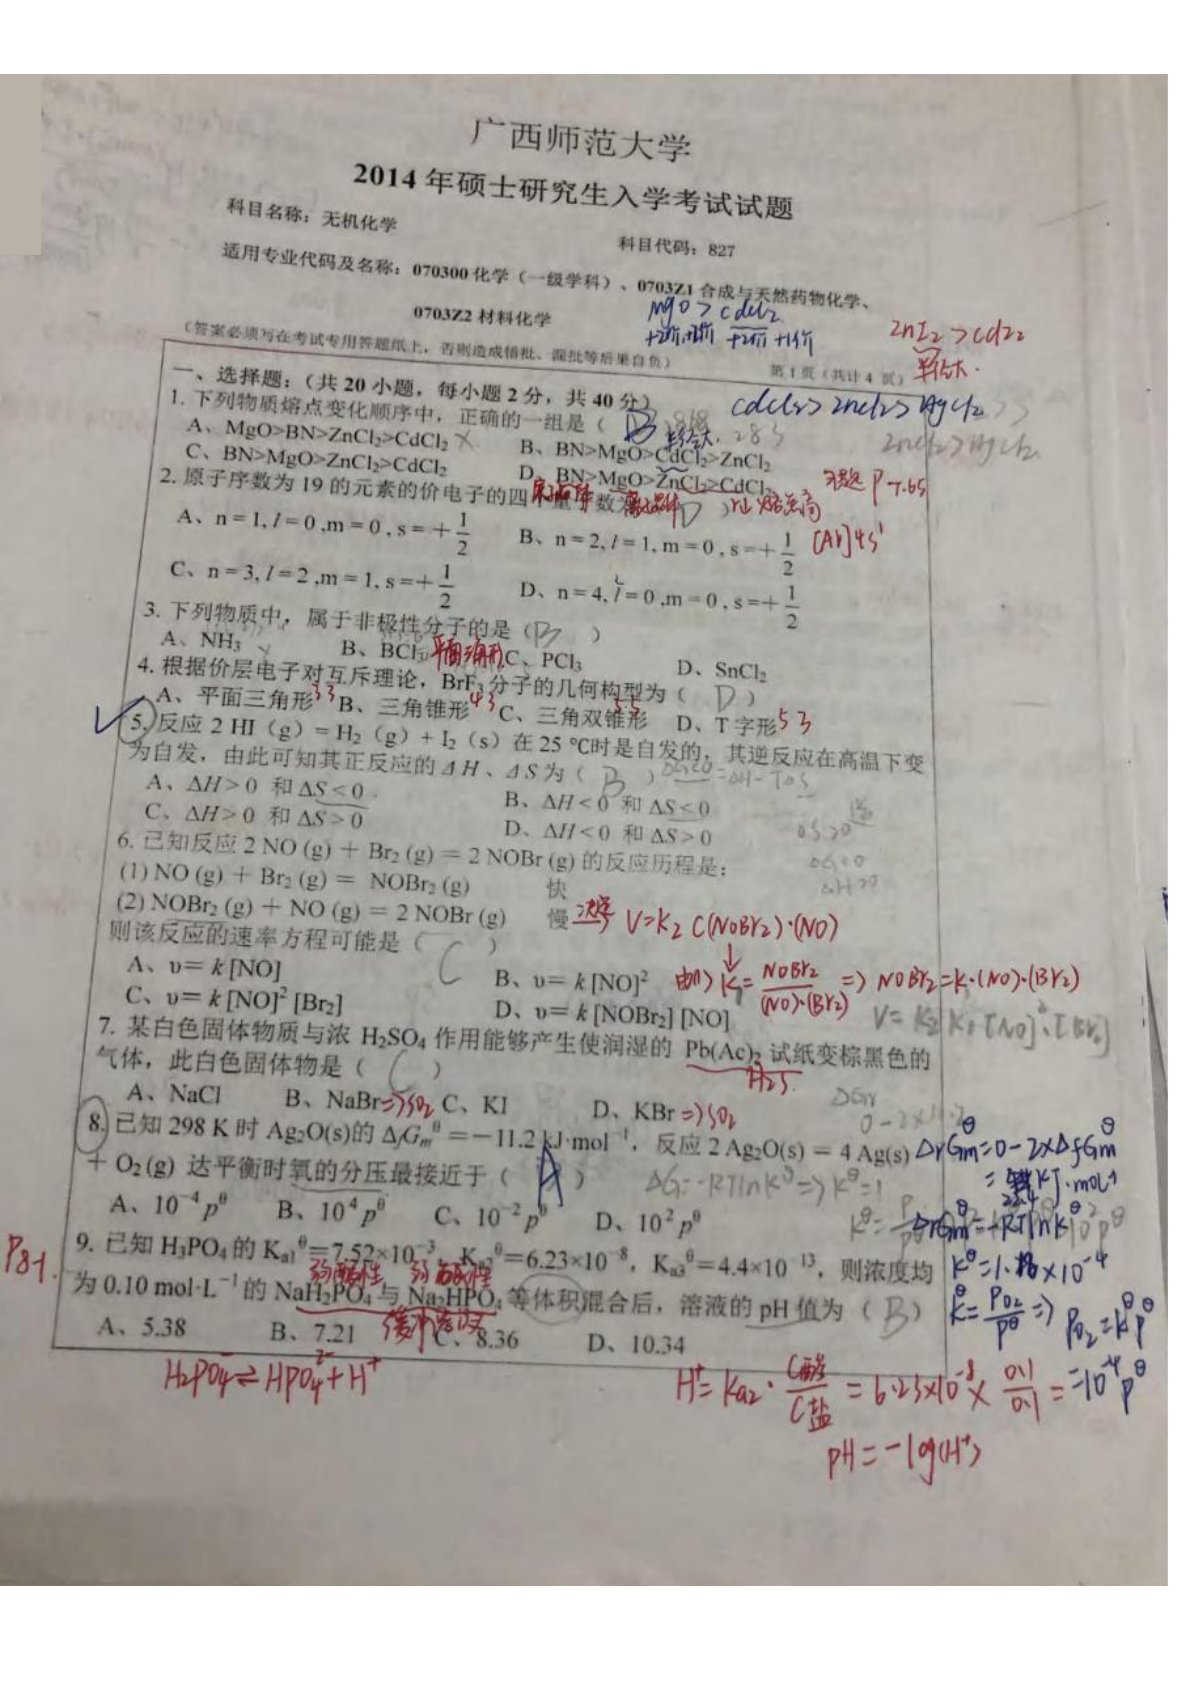 广西师范大学
2014 年硕士研究生入学考试试题
科目名称：无机化学
科目代码：827
适用专业代码及名称：070300 化学（一级学科）、0703Z1 合成与天然药物化学、
0703Z2 材料化学
MgO > CdCl₂
ZnI₂ > CdI₂
（答案必须写在考试专用答题纸上，否则造成错批、漏批等后果自负）
第 1 页（共计 4 页）
一、选择题：（共 20 小题，每小题 2 分，共 40 分）
CdCl₂ > ZnCl₂ > HgCl₂
1. 下列物质熔点变化顺序中，正确的一组是（ B
A、MgO>BN>ZnCl₂>CdCl₂ ×
B、BN>MgO>CdCl₂>ZnCl₂
ZnCl₂ > HgCl₂
C、BN>MgO>ZnCl₂>CdCl₂
D、BN>MgO>ZnCl₂>CdCl₂
2. 原子序数为 19 的元素的价电子的四个量子数为 D ）
P-T.65
A、n = 1, l = 0 ,m = 0 , s = + 1/2
B、n = 2, l = 1, m = 0 , s = + 1/2
[Ar]4s¹
C、n = 3, l = 2 ,m = 1, s = + 1/2
D、n = 4, l = 0 ,m = 0 , s = + 1/2
3. 下列物质中，属于非极性分子的是（ B ）
A、NH₃ B、BCl₃ 平面三角形 C、PCl₃ D、SnCl₂
4. 根据价层电子对互斥理论，BrF₃ 分子的几何构型为（ D ）
A、平面三角形 3 3 B、三角锥形 4 3 C、三角双锥形 5 5 D、T 字形 5 3
5. 反应 2 HI（g）= H₂（g）+ I₂（s）在 25 ℃时是自发的，其逆反应在高温下变
为自发，由此可知其正反应的 ΔH、ΔS 为（ B ） ΔG<0 = ΔH - TΔS
A、ΔH > 0 和 ΔS < 0
B、ΔH < 0 和 ΔS < 0
C、ΔH > 0 和 ΔS > 0
D、ΔH < 0 和 ΔS > 0
ΔS>0 逆
6. 已知反应 2 NO (g) + Br₂ (g) = 2 NOBr (g) 的反应历程是：
ΔG<0
(1) NO (g) + Br₂ (g) = NOBr₂ (g) 快
ΔH>0
(2) NOBr₂ (g) + NO (g) = 2 NOBr (g) 慢 V=K₂ C(NOBr₂)·(NO)
则该反应的速率方程可能是（ C ）
A、υ= k [NO]
B、υ= k [NO]²
由(1) K₁= NOBr₂/(NO)·(Br₂) => NOBr₂=K·(NO)·(Br₂)
C、υ= k [NO]² [Br₂]
D、υ= k [NOBr₂] [NO]
V= K₂ K₁·[NO]²·[Br₂]
7. 某白色固体物质与浓 H₂SO₄ 作用能够产生使润湿的 Pb(Ac)₂ 试纸变棕黑色的
气体，此白色固体物是（ C ）
H₂S.
A、NaCl B、NaBr =>SO₂ C、KI D、KBr =>SO₂
8. 已知 298 K 时 Ag₂O(s)的 ΔfGmθ = －11.2 kJ·mol⁻¹，反应 2 Ag₂O(s) = 4 Ag(s)
ΔrGmθ=0-2×ΔfGmθ
+ O₂ (g) 达平衡时氧的分压最接近于（ A ）
ΔG=-RTlnKθ => Kθ=1
= 22.4 KJ·mol⁻¹
A、10⁻⁴ pθ B、10⁴ pθ C、10⁻² pθ D、10² pθ
ΔrGmθ=-RTlnKθ
9. 已知 H₃PO₄ 的 Ka1θ=7.52×10⁻³，Ka2θ=6.23×10⁻⁸，Ka3θ=4.4×10⁻¹³，则浓度均
P81.
弱酸性
为 0.10 mol·L⁻¹ 的 NaH₂PO₄ 与 Na₂HPO₄ 等体积混合后，溶液的 pH 值为（ B ）
Kθ= PO₂/pθ => PO₂=Kθpθ
A、5.38 B、7.21 C、8.36 D、10.34
缓冲溶液
=10⁻⁴pθ
H₂PO₄⁻ ⇌ HPO₄²⁻ + H⁺
H⁺= Ka₂· C酸/C盐 = 6.23×10⁻⁸× 0.1/0.1 =
pH = -log(H⁺)